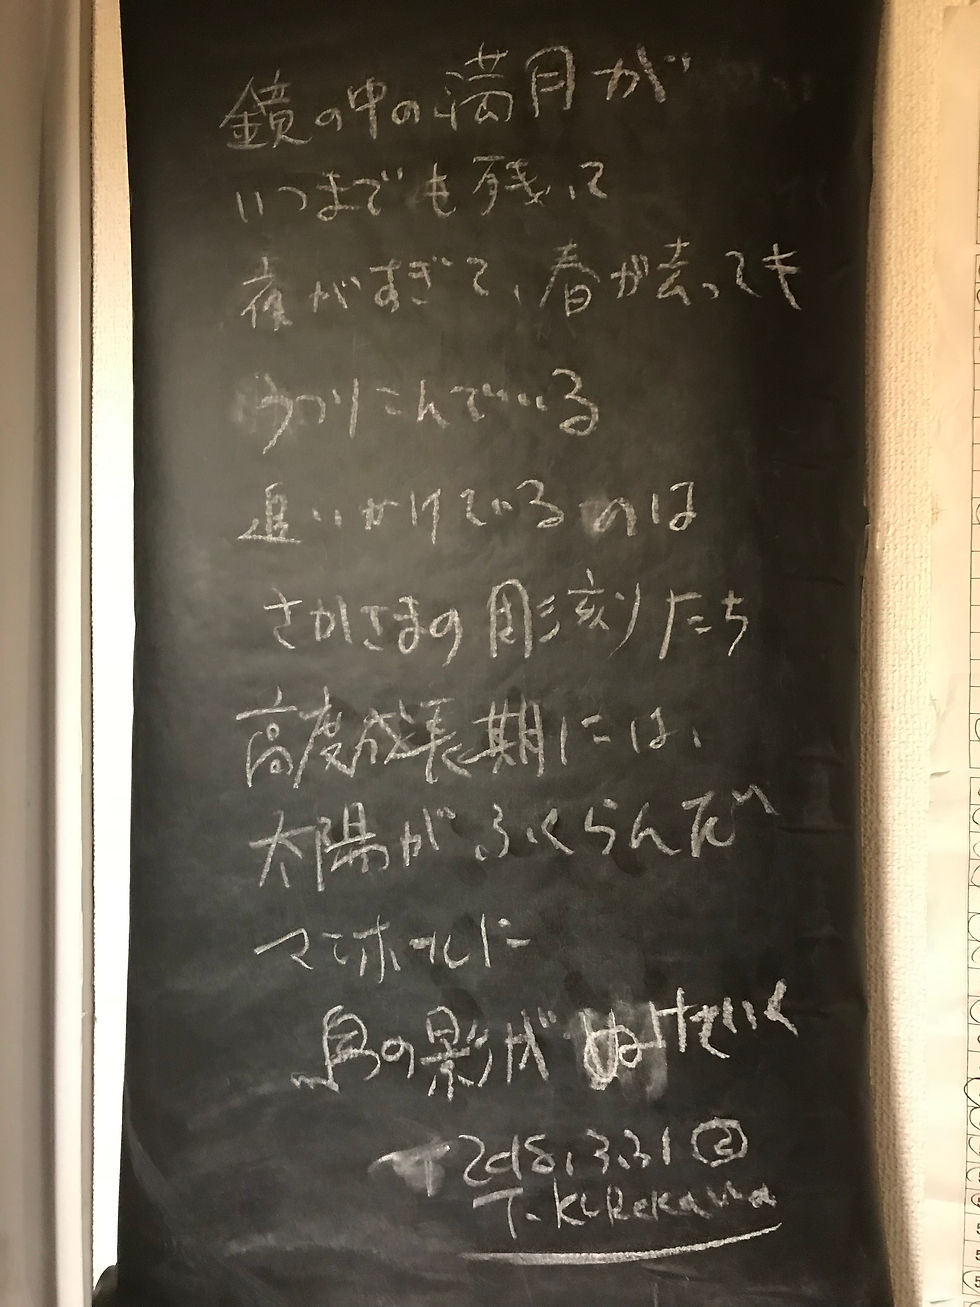 鏡の中の満月が
いつまでも残って
夜がすぎて、春が去っても
うつりこんでいる
追いかけているのは
さかさまの彫刻たち
高度成長期には、
太陽がふくらんで
マンホールに
鳥の影がぬけていく
2018.3.31 ②
T. KUROKAWA